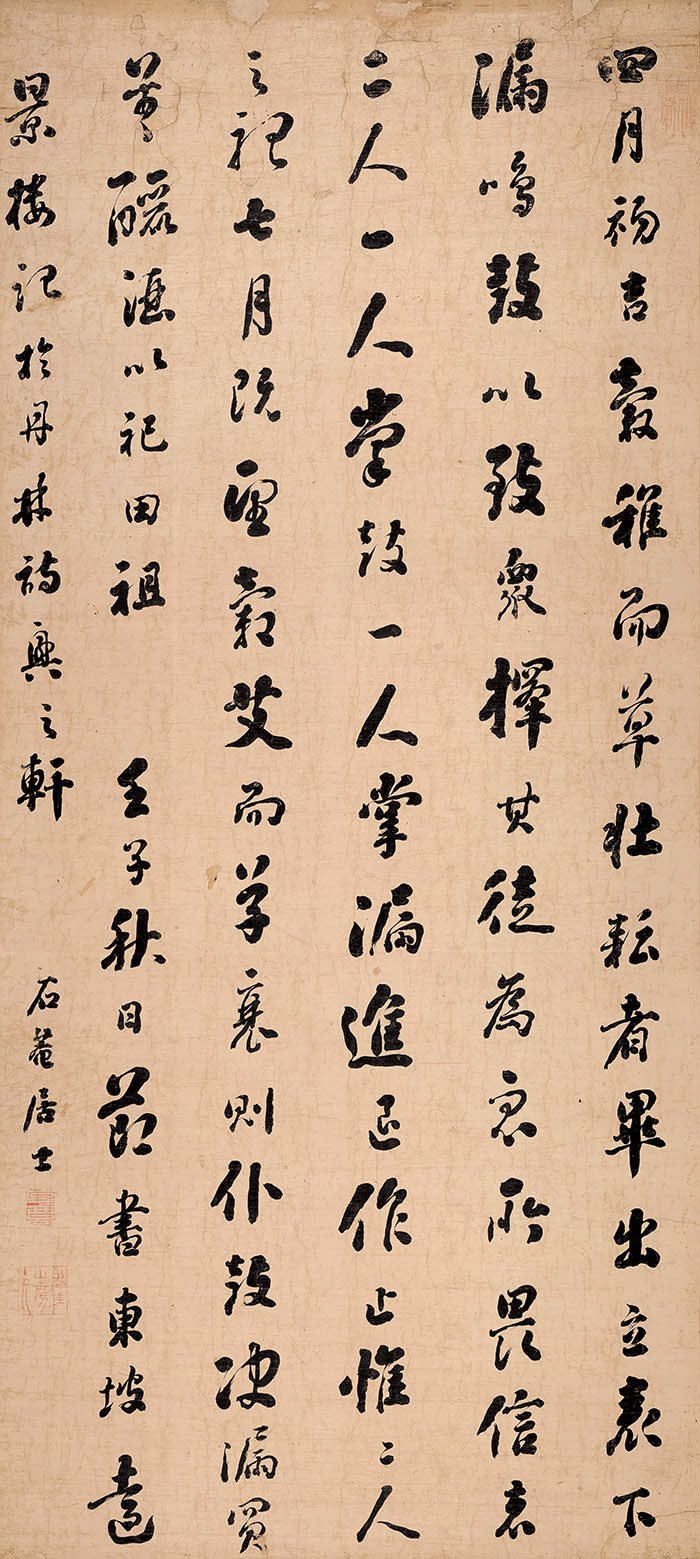 四月初吉穀稚而草壯耘者畢出立表下
漏鳴鼓以致眾擇其徒為眾所畏信者
二人一人掌鼓一人掌漏進退作止惟二人
之聽七月既望穀艾而草衰則仆鼓決漏買
羊釃酒以祀田祖 壬子秋日節書東坡遠
景樓記於丹林詩興之軒 石菴居士